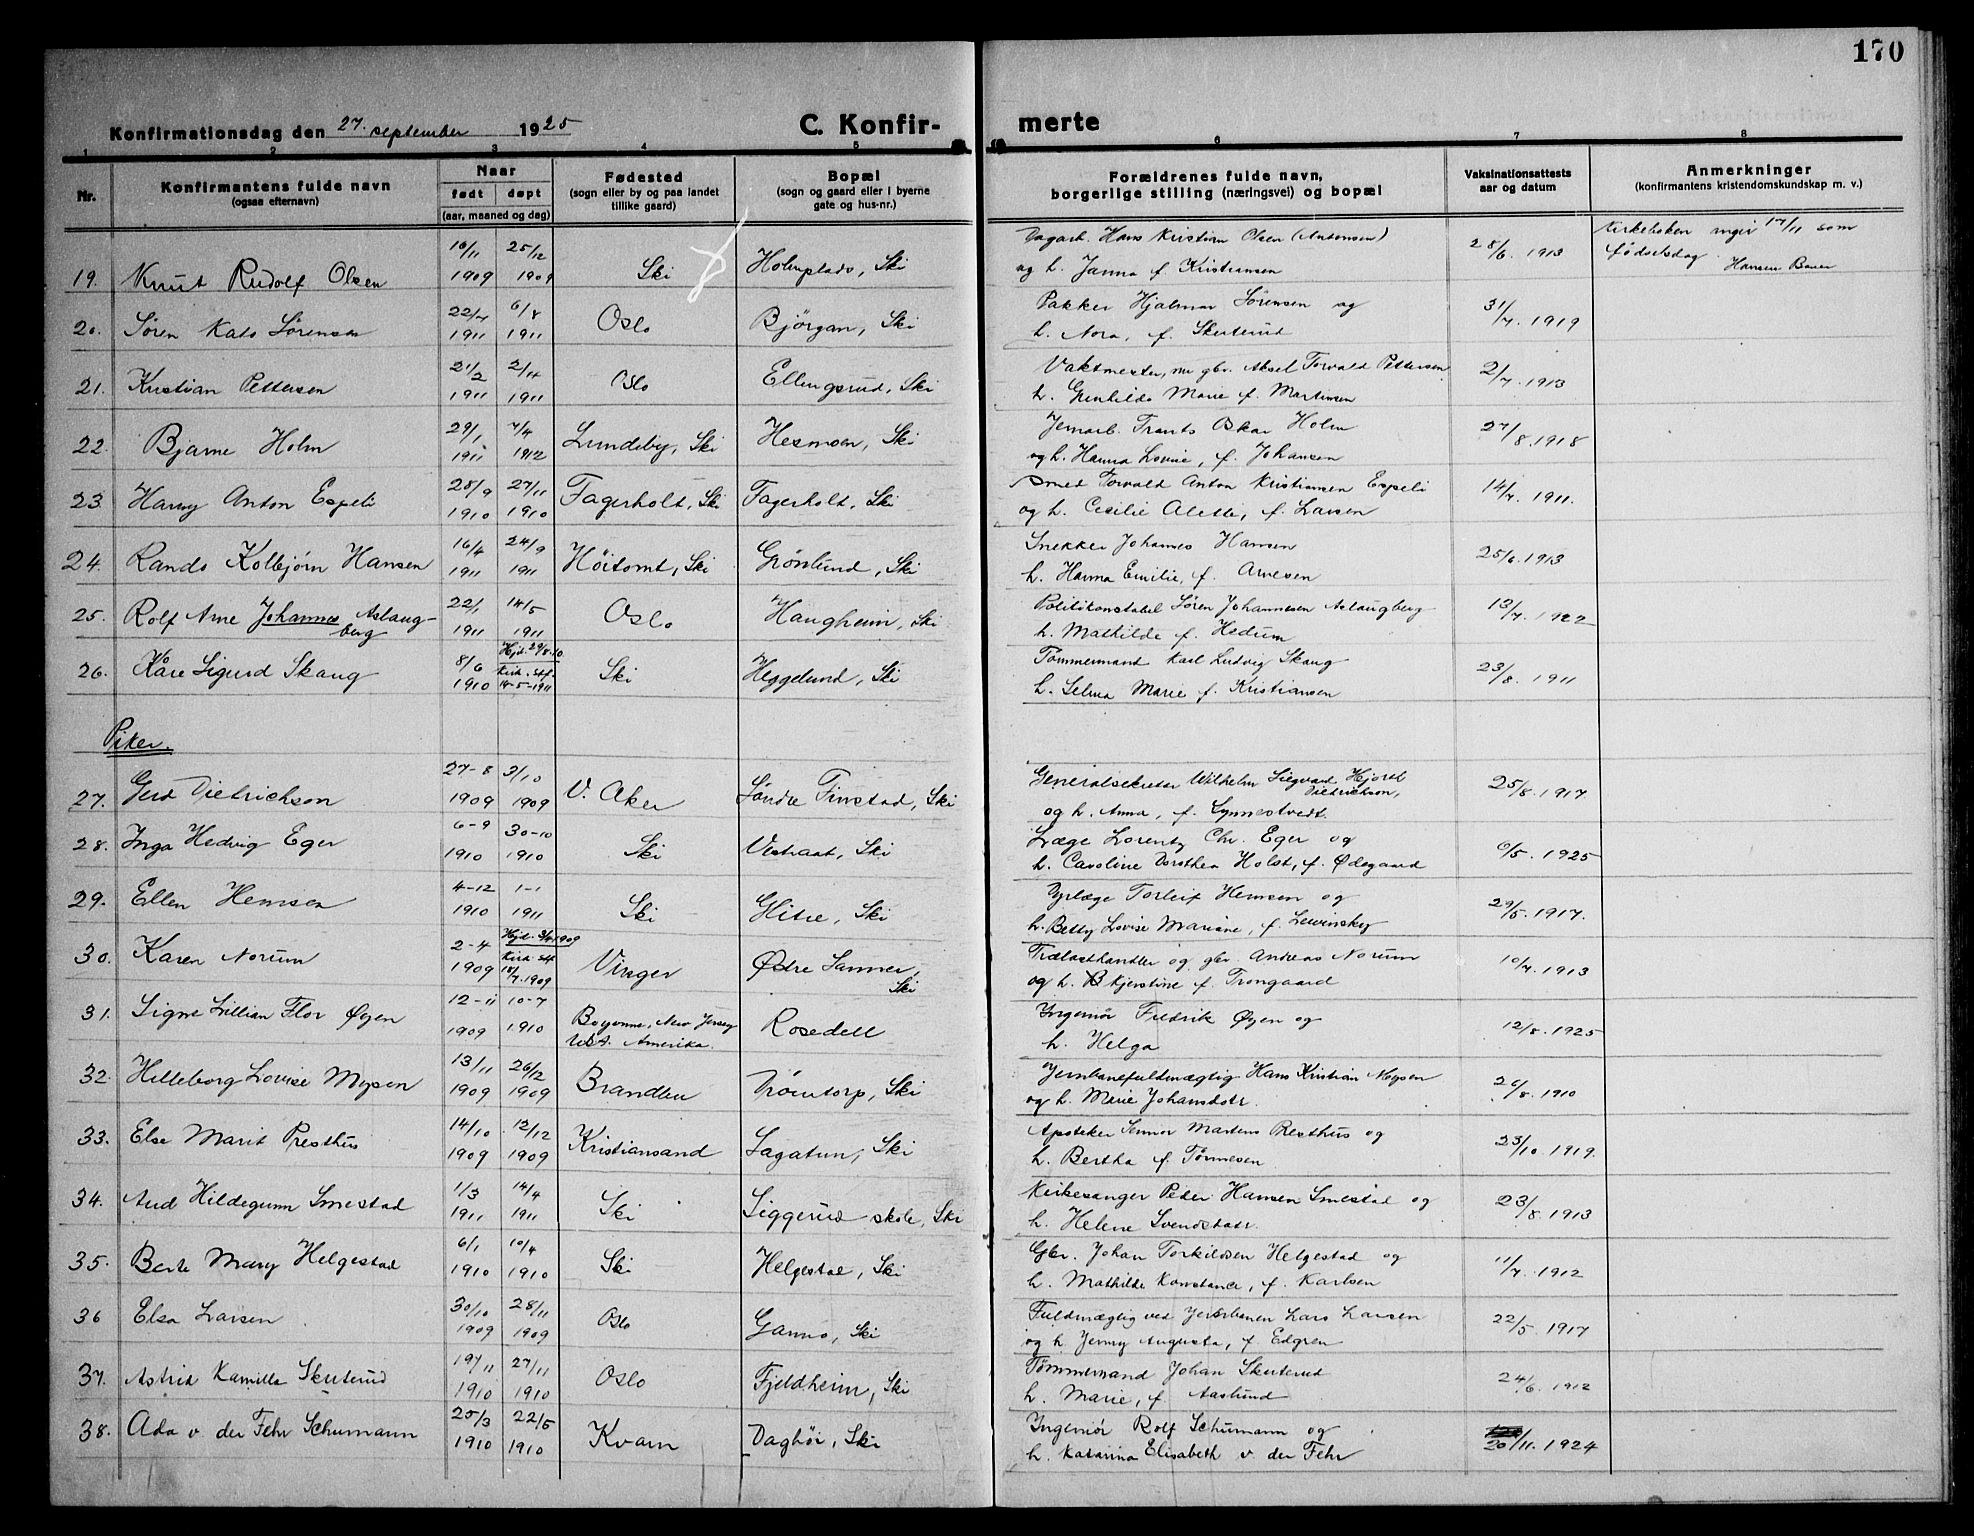 170
Konfirmationsdag den 27. september 1925
C. Konfir-
merte
1 2 3 4 5 6 7 8
Nr.
Konfirmantens fulde navn
(ogsaa efternavn)
Naar
født døpt
(aar, maaned og dag)
Fødested
(sogn eller by og paa landet
tillike gaard)
Bopæl
(sogn og gaard eller i byerne
gate og hus-nr.)
Forældrenes fulde navn,
borgerlige stilling (næringsvei) og bopæl
Vaksinationsattests
aar og datum
Anmerkninger
(konfirmantens kristendomskundskap m. v.)
25/12 Dagarb. Hans Kristian Olsen (Antonsen) Kirkeboken angir 17/11 som
19. Knut Rudolf Olsen 1909 1909 Ski Ski og h. Janna f. Kristiansen 28/6 1913 fødselsdag. Hansen Bauer
22/7 6/8 Pakker Hjalmar Sørensen og
20. Søren Kato Sørensen 1911 1911 Oslo Bjørgan, Ski h. Nora, f. Skuterud 31/7. 1919
21/2 2/4 Vaktmester, nu gbr. Aksel Torvald Pettersen
21. Kristian Pettersen 1911 1911 Oslo Ellingsrud, Ski h. Gunhilda Marie f. Martinsen 2/7. 1913
29/1 7/4 Jernarb. Frants Oskar Holm
22. Bjarne Holm 1911 1912 Lundeby, Ski Hesmoen, Ski og h. Hanna Lovise, f. Johansen 27/8. 1918
28/9 27/11 Smed Torvald Anton Kristiansen Espeli
23. Harry Anton Espeli 1910 1910 Fagerholt, Ski Fagerholt, Ski og h. Cecilie Alette, f. Larsen 14/7. 1911.
16/4 24/9 Snekker Johannes Hansen
24. Rando Kolbjørn Hansen 1911 1911 Høitomt, Ski Grønlund, Ski h. Hanna Emilie, f. Arnesen 25/6. 1913
22/1 14/5 Politikonstabel Søren Johannesen Aslaugberg
25. Rolf Arne Johannes Aslaug-
berg 1911 1911 Oslo Haugheim, Ski h. Mathilde f. Hedum 13/7. 1922
8/6 Hjd. 29/8-10 Tømmermand Karl Ludvig Skaug
26. Kåre Sigurd Skaug 1910 Kirk. stf. 14-5-1911 Ski Heggelund, Ski h. Selma Marie f. Kristiansen 23/8. 1911
Piker.
27-8 3/10 Generalsekretær Wilhelm Siegvard Hjorth Dietrichson,
27. Gerd Dietrichson 1909 1909 V. Aker Søndre Finstad, Ski og h. Anna, f. Synnestvedt. 25/8. 1917
6-9 30-10 Læge Lorentz Chr. Eger og
28. Inga Hedvig Eger 1910 1910 Ski Vestraat, Ski h. Caroline Dorothea Holst, f. Ødegaard 1925
4-12 1-1 Dyrlæge Torleif Hemsen og
29. Ellen Hemsen 1910 1911 Ski Glitre, Ski h. Betty Lovise Mariane, f. Lewinsky 29/5. 1917.
2-4 Hjd. 3/4 1909 Trælasthandler og gbr. Andreas Norum
30. Karen Norum 1909 Kirk. stf. 18/7. 1909 Vinger Østre Sanner, Ski og h. Kjerstine f. Trongaard 10/7. 1913
12-11 10-7 Ingeniør Fredrik Øyen og
31. Signe Lillian Flor Øyen 1909 1910 Bayonne, New Jersey
USA. Amerika. Rosedell h. Helga 12/8. 1925
13/11 26/12 Jernbanefuldmægtig Hans Kristian Mysen
32. Hilleborg Lovise Mysen 1909 1909 Brandbu Drømtorp, Ski og h. Marie Johansdotr. 26/8. 1910
14/10 12/12 Apoteker Martens Presthus og
33. Else Marit Presthus 1909 1909 Kristiansand Sagatun, Ski h. Bertha f. Tønnesen 23/10. 1919.
1/3 14/4 Kirkesanger Peder Hansen Smestad og
34. Aud Hildegunn Smestad 1911 1911 Ski Siggerud skole, Ski h. Helene Svendsdatr. 23/8. 1913
6/1 10/4 Gbr. Johan Torkildsen Helgestad og
35. Berte Mary Helgestad 1910 1910 Ski Helgestad, Ski h. Mathilde Konstance, f. Karlsen 11/7. 1912
30/10 28/11 Fuldmægtig ved Jernbanen Lars Larsen
36 Elsa Larsen 1909 1909 Oslo Ski og h. Jenny Augusta, f. Edgren 22/5. 1917
19/11 27/11 Tømmermand Johan Skuterud
37. Astrid Kamilla Skuterud 1910 1910 Oslo Fjeldheim, Ski h. Marie, f. Aaslund 24/6. 1912
25/3 22/5 Ingeniør Rolf Schumann og
38. Ada v der Fehr Schumann 1910 1910 Kvam Daghøi, Ski h. Katarina Elisabeth v. der Fehr 20/11. 1924